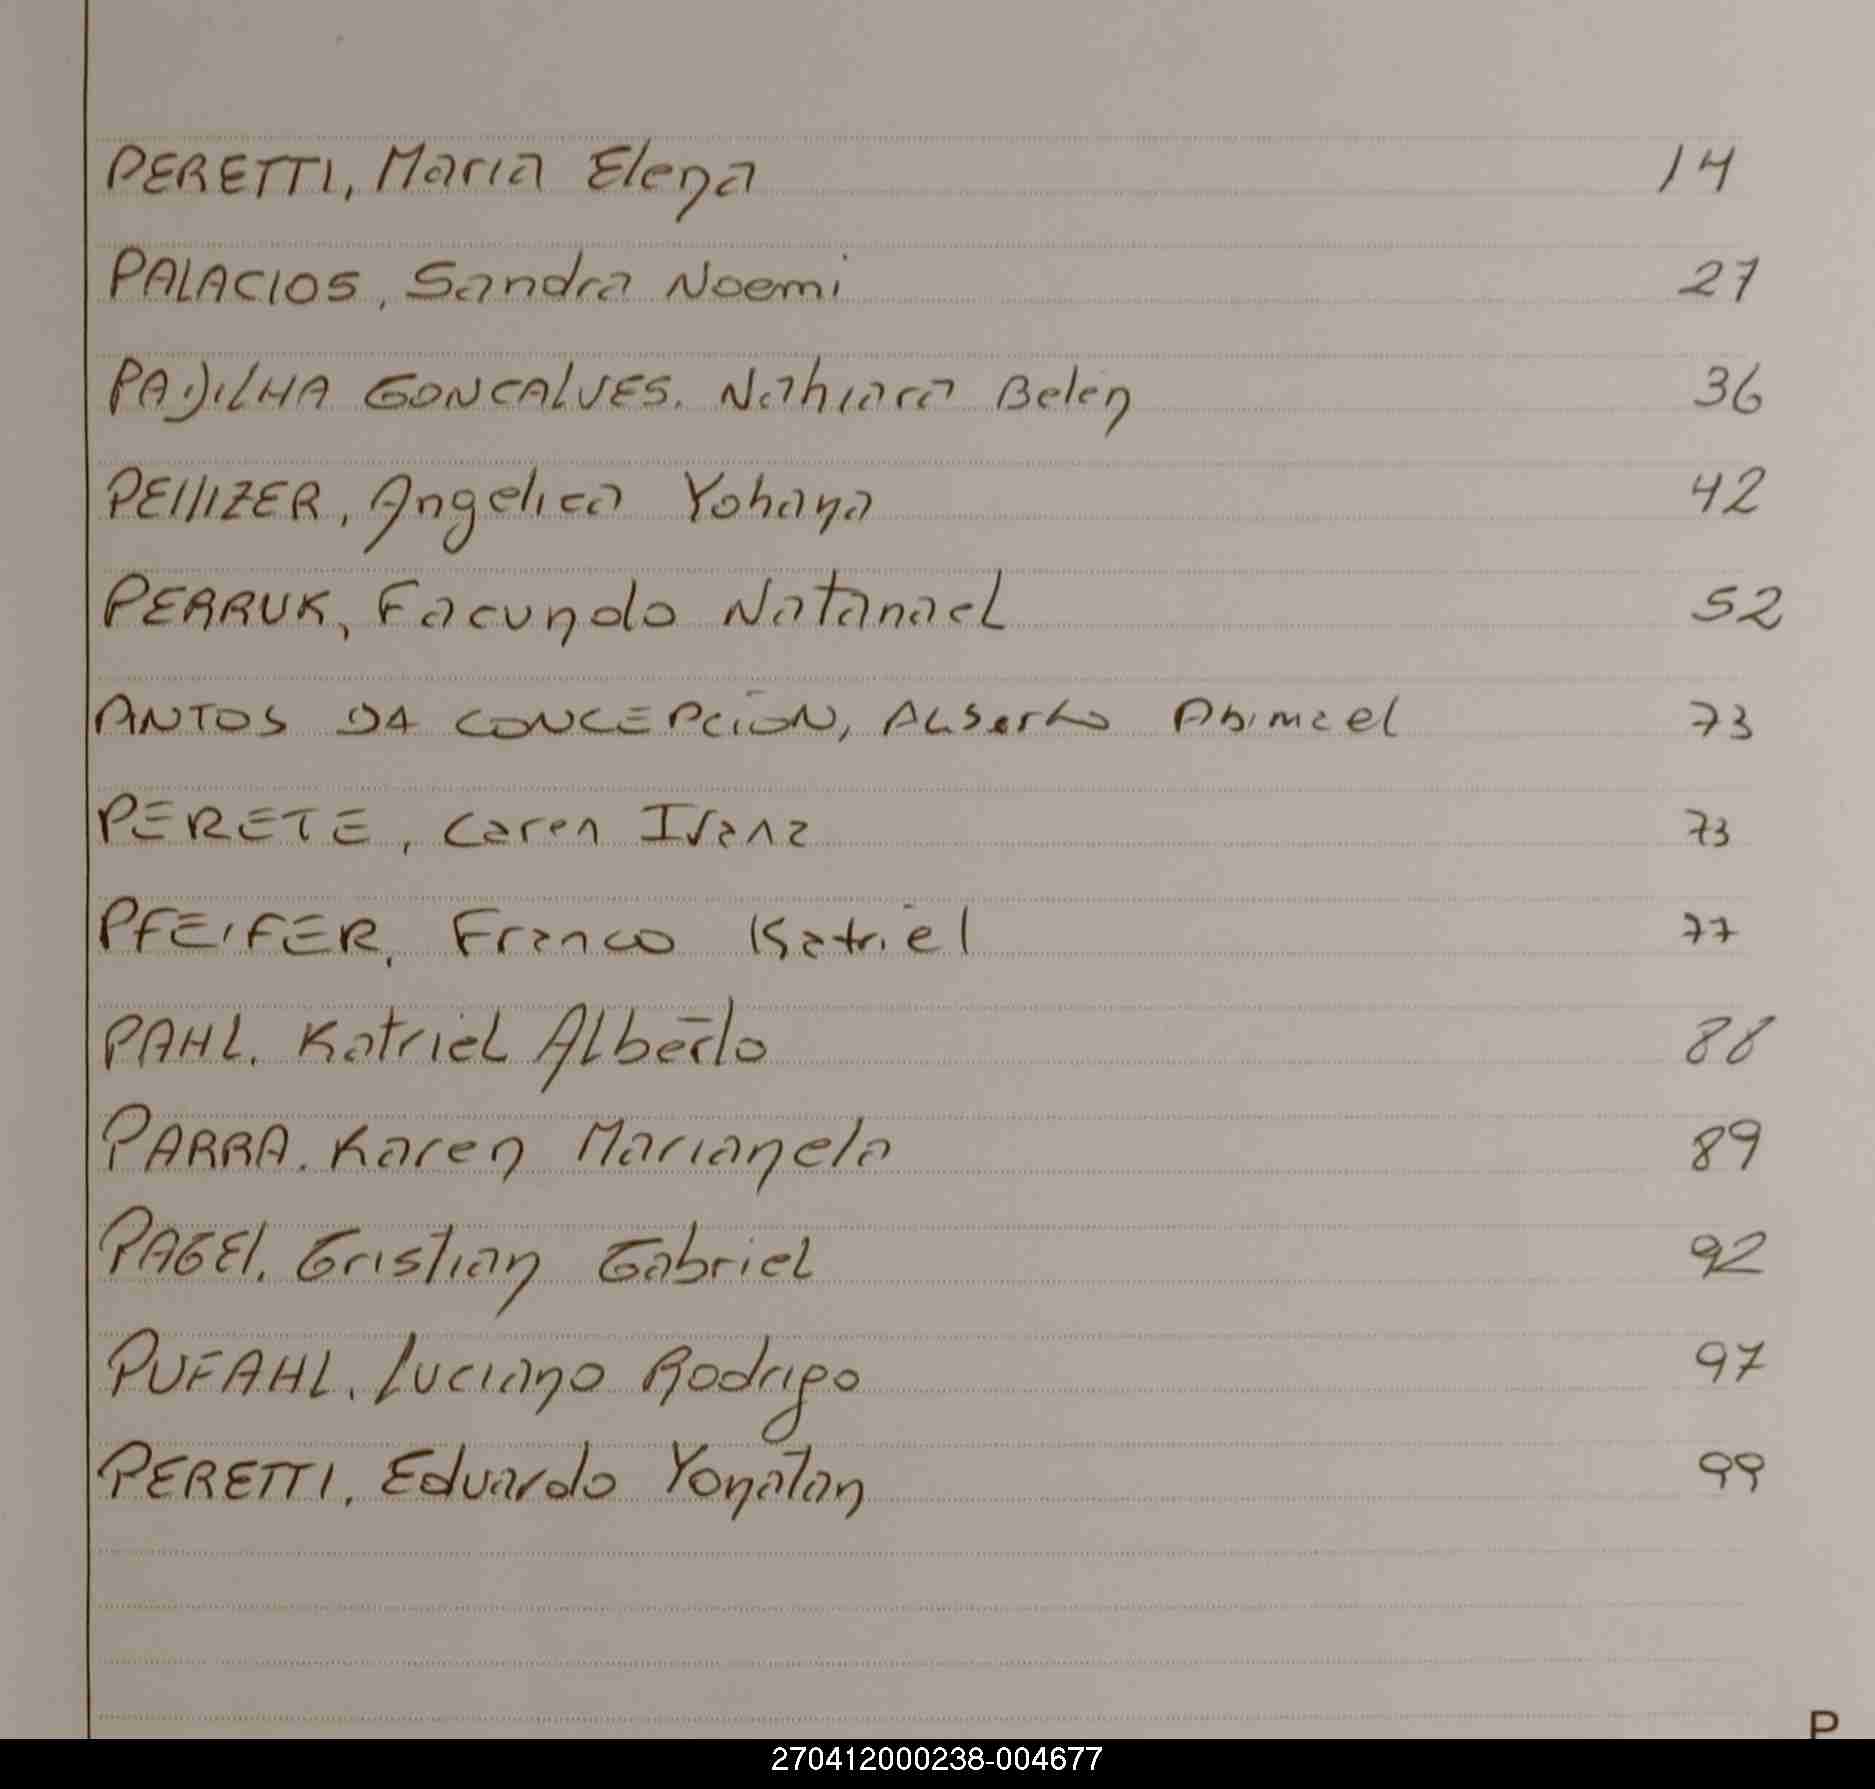 PERETTI, Maria Elena 14
PALACIOS, Sandra Noemi 27
PADILHA GONCALVES. Nahiara Belen 36
PEllIZER, Angelica Yohana 42
PERRUK, Facundo Natanael 52
ANTOS DA CONCEPCION, Alberto Abimael 73
PERETE, Caren Ivana 73
PFEIFER, Franco Katriel 77
PAHL. Katriel Alberto 88
PARRA. Karen Marianela 89
PAGEl. Cristian Gabriel 92
PUFAHL. Luciano Rodrigo 97
PERETTI, Eduardo Yonatan 99
P
270412000238-004677